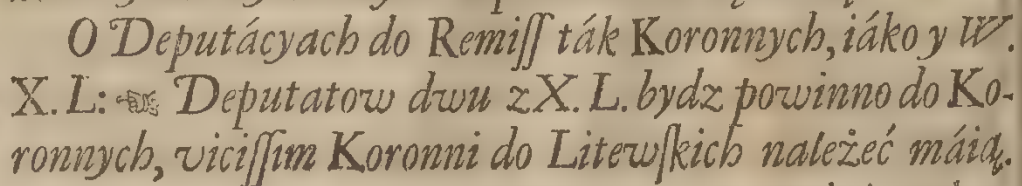 O Deputácyach do Remiſſ ták Koronnych, iáko y W.
X. L: ☜ Deputatow dwu z X. L. bydz powinno do Ko-
ronnych, viciſſim Koronni do Litewſkich należeć máią.